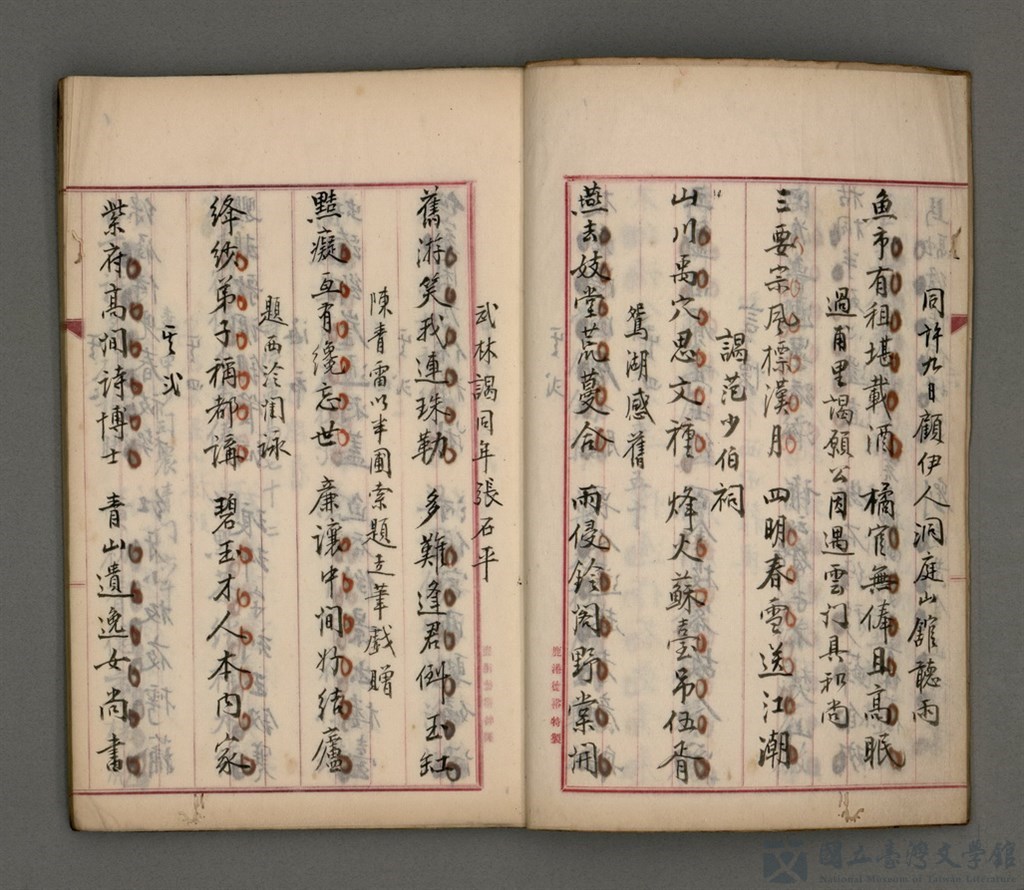 同許九日顧伊人洞庭山館聽雨
魚市有租堪載酒　橘官無俸且高眠
過甫里謁願公因遇雲门具和尚
三要宗風標漢月　四明春雪送江潮
謁范少伯祠
山川禹穴思文種　烽火蘇臺吊伍胥
鴛湖感舊
燕去妓堂荒蔓合　雨侵鈴阁野棠開
鹿港信昌特製
武林謁同年張石平
舊游笑我連珠勒　多難逢君倒玉缸
陳青雷以半圃索題走筆戲贈
黠癡互有纔忘世　廉讓中間好結廬
題西泠閨詠
絳紗弟子稱都講　碧玉才人本内家
其弍
紫府高閒詩博士　青山遺逸女尚書
國立臺灣文學館
National Museum of Taiwan Literature